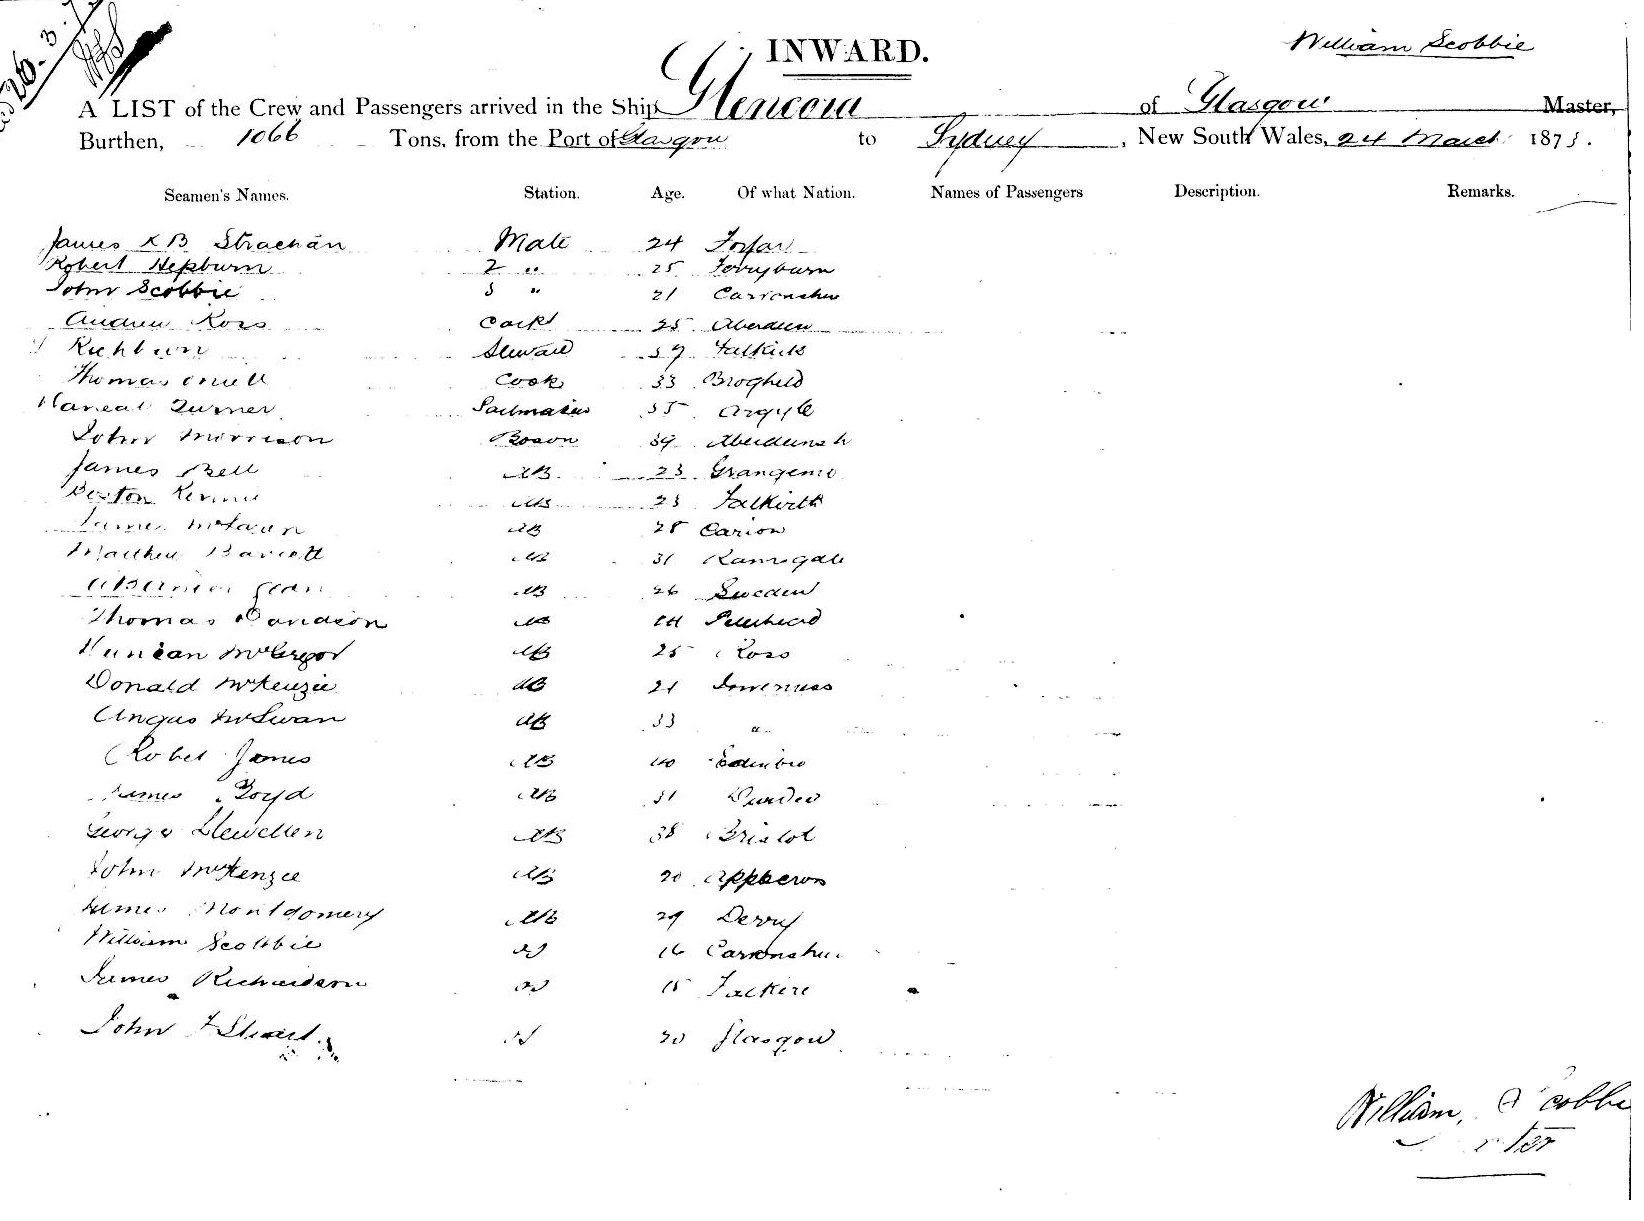 26.3.7
INWARD.
William Scobbie
A LIST of the Crew and Passengers arrived in the Ship Glencora of Glasgow Master,
Burthen, 1066 Tons, from the Port of Glasgow to Sydney, New South Wales, 24 March 1873.
Seamen's Names. Station. Age. Of what Nation. Names of Passengers Description. Remarks.
James K B Strachan Mate 24 Forfar
Robert Hepburn 2 " 25 Ferryburn
John Scobbie 3 " 21 Carronshu
Andrew Ross 25 Aberdeen
Steward 39 Falkirk
Thomas Cook 33
Turner Sailmaker 35 Argyle
John Morrison Boson 39 Aberdeensh
James Bell AB 23 Grangemo
Rennie AB 23 Falkirth
James AB 28 Carion
Matthew AB 31 Ramsgate
AB 26 Sweden
Thomas Davidson AB Peterhead
Duncan McGregor AB 25 Ross
Donald McKenzie AB 21 Inverness
Angus McSwan AB 33 "
Robet James AB 40 Edinbro
James Boyd AB 31 Dundee
George Llewellen AB 38 Bristol
John McKenzie AB 20
James Montgomery AB 29 Derry
William Scobbie 16 Carronshu
James Richardson 15
John F 20 Glasgow
William Scobbie